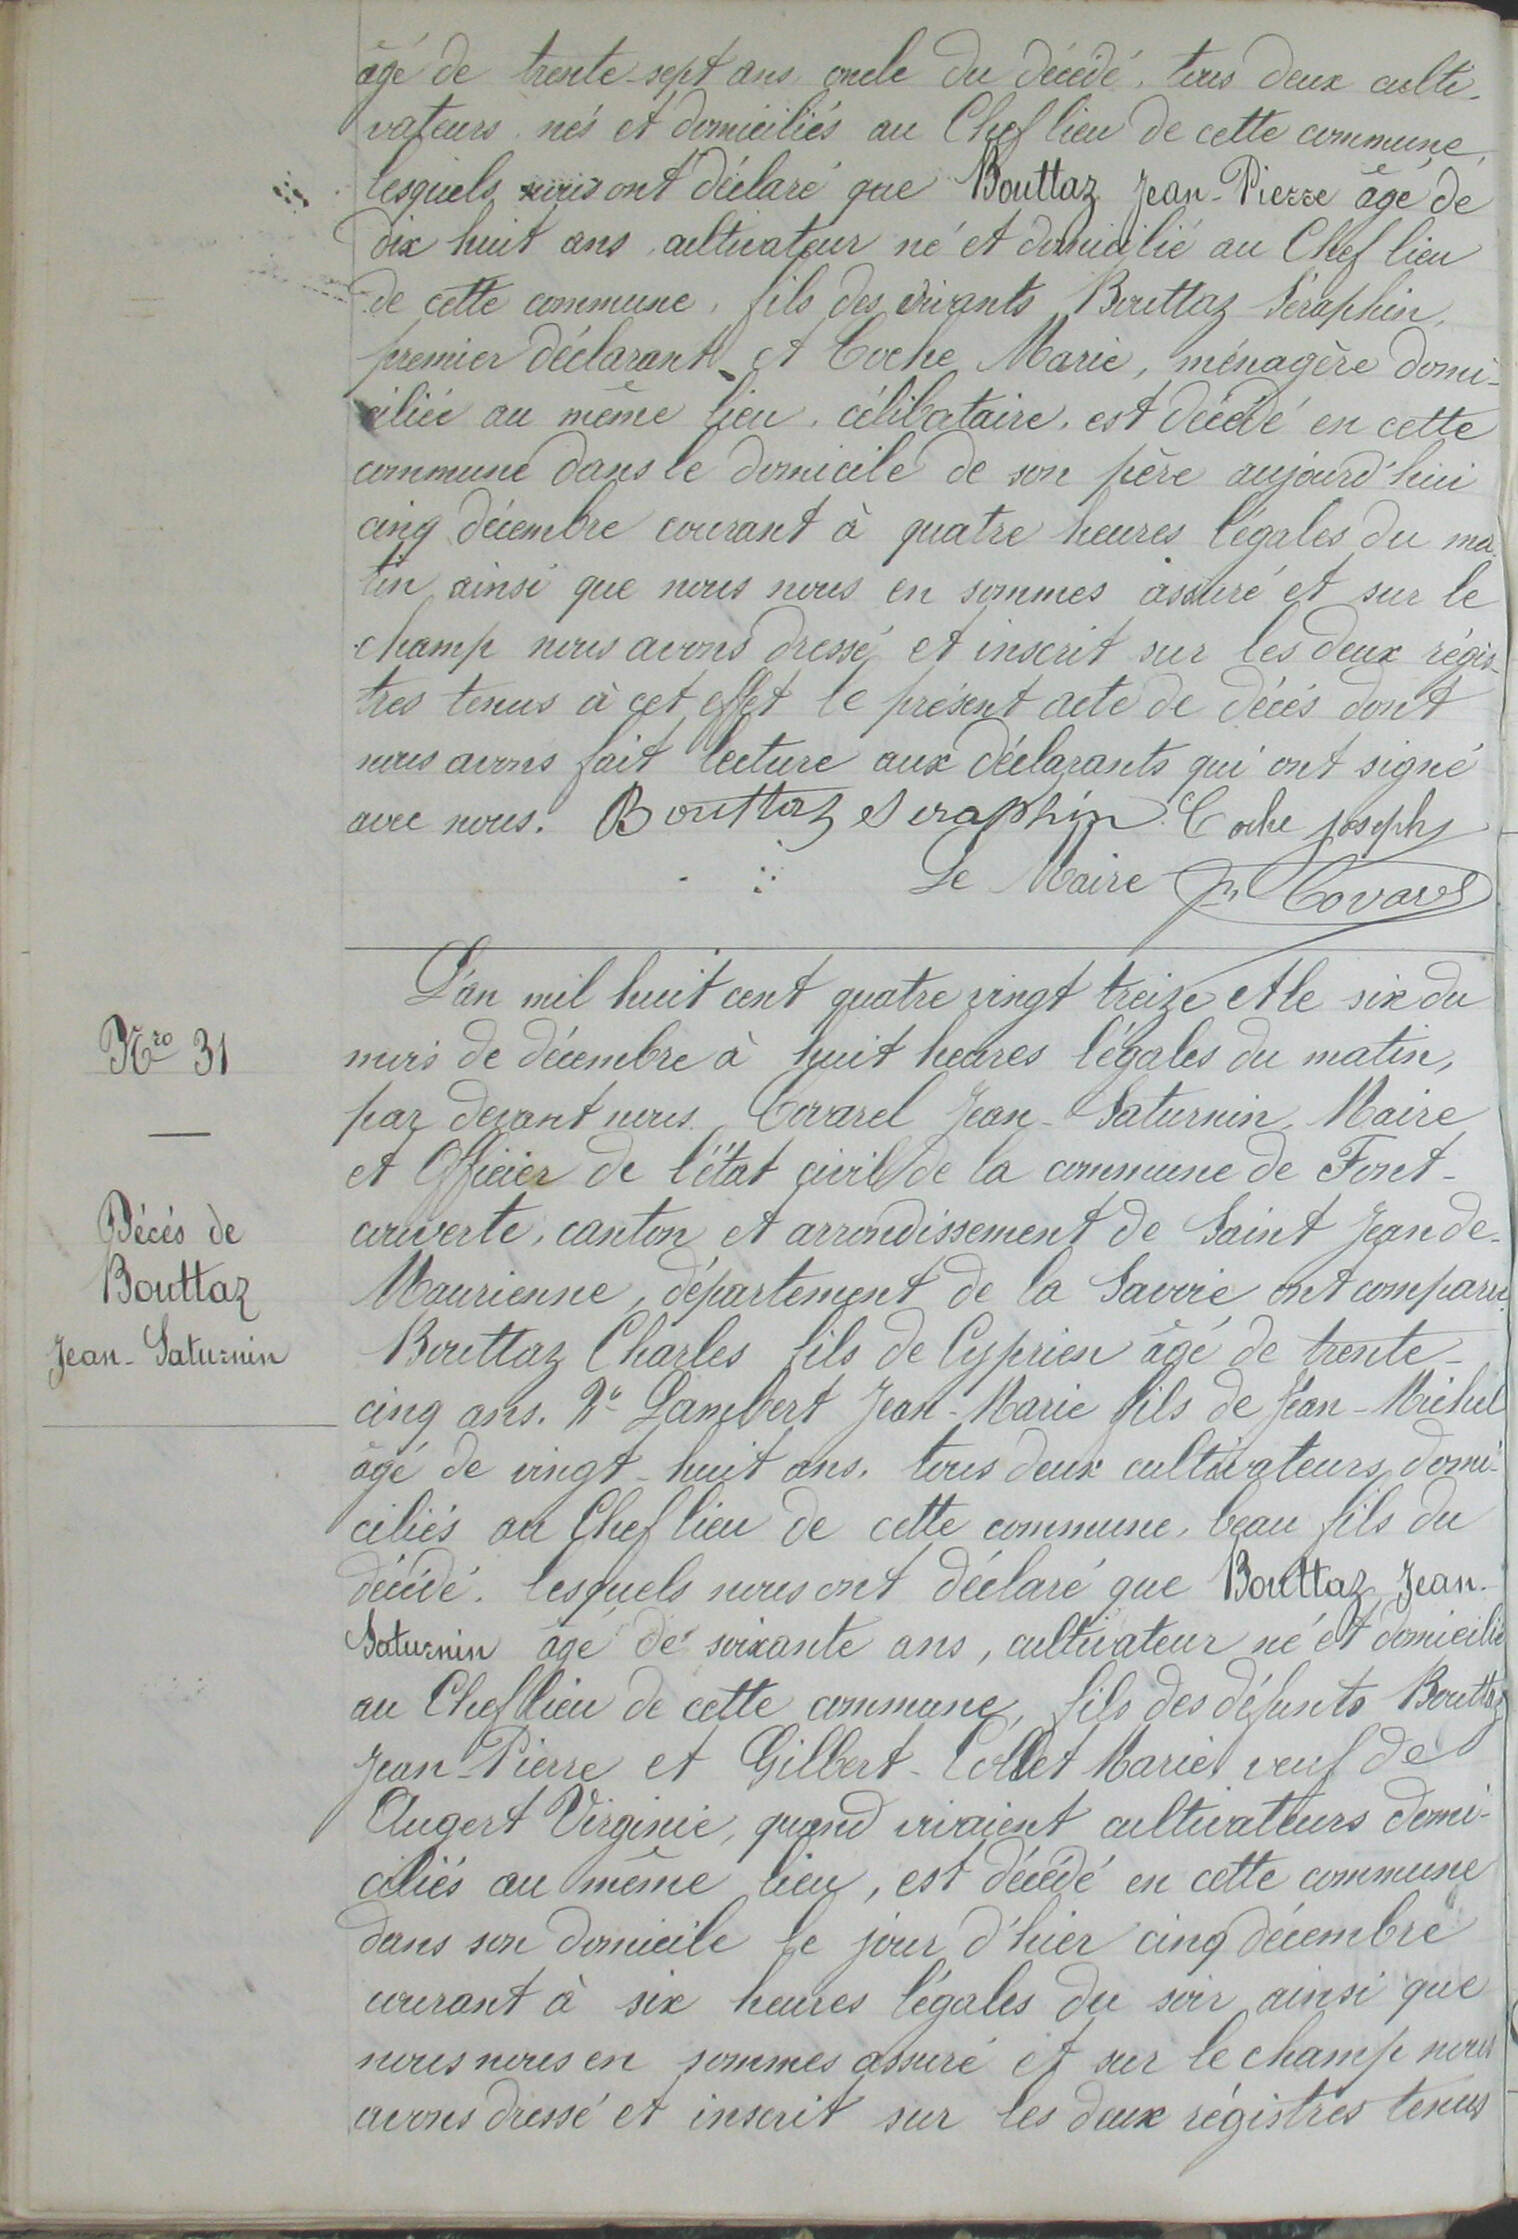 âgé de trente-sept ans, oncle du décédé, tous deux culti-
vateurs nés et domiciliés au Chef lieu de cette commune,
lesquels nous ont déclaré que Bouttaz Jean-Pierre âgé de
dix huit ans, cultivateur né et domicilié au Chef lieu
de cette commune, fils des vivants Bouttaz Séraphin,
premier déclarant, et Coche Marie, ménagère domi-
ciliée au même lieu, célibataire, est décédé en cette
commune dans le domicile de son père aujourd'hui
cinq décembre courant à quatre heures légales du ma-
tin ainsi que nous nous en sommes assuré et sur le
champ nous avons dressé et inscrit sur les deux régis-
tres tenus à cet effet le présent acte de décés dont
nous avons fait lecture aux déclarants qui ont signé
avec nous. Bouttaz Seraphin Coche joseph
Le Maire Covarel
L'an mil huit cent quatre vingt treize et le six du
Nro 31
mois de décembre à huit heures légales du matin,
par devant nous Covarel Jean-Saturnin, Maire
et Officier de l'état civil de la commune de Font-
Décés de
couverte, canton et arrondissement de Saint Jean de-
Bouttaz
Maurienne, département de la Savoie ont comparu
Jean-Saturnin
Bouttaz Charles fils de Cyprien âgé de trente-
cinq ans. 2° Lambert Jean-Marie fils de Jean-Michel
âgé de vingt-huit ans, tous deux cultivateurs domi-
ciliés au Chef lieu de cette commune, beau fils du
décédé, lesquels nous ont déclaré que Bouttaz Jean-
Saturnin âgé de soixante ans, cultivateur né et domicilié
au Chef lieu de cette commune, fils des défunts Bouttaz
Jean-Pierre et Gilbert-Collet Marie, veuf de
Augert Virginie, quand vivaient cultivateurs domi-
ciliés au même lieu, est décédé en cette commune
dans son domicile le jour d'hier cinq décembre
courant à six heures légales du soir ainsi que
nous nous en sommes assuré et sur le champ nous
avons dressé et inscrit sur les deux régistres tenus